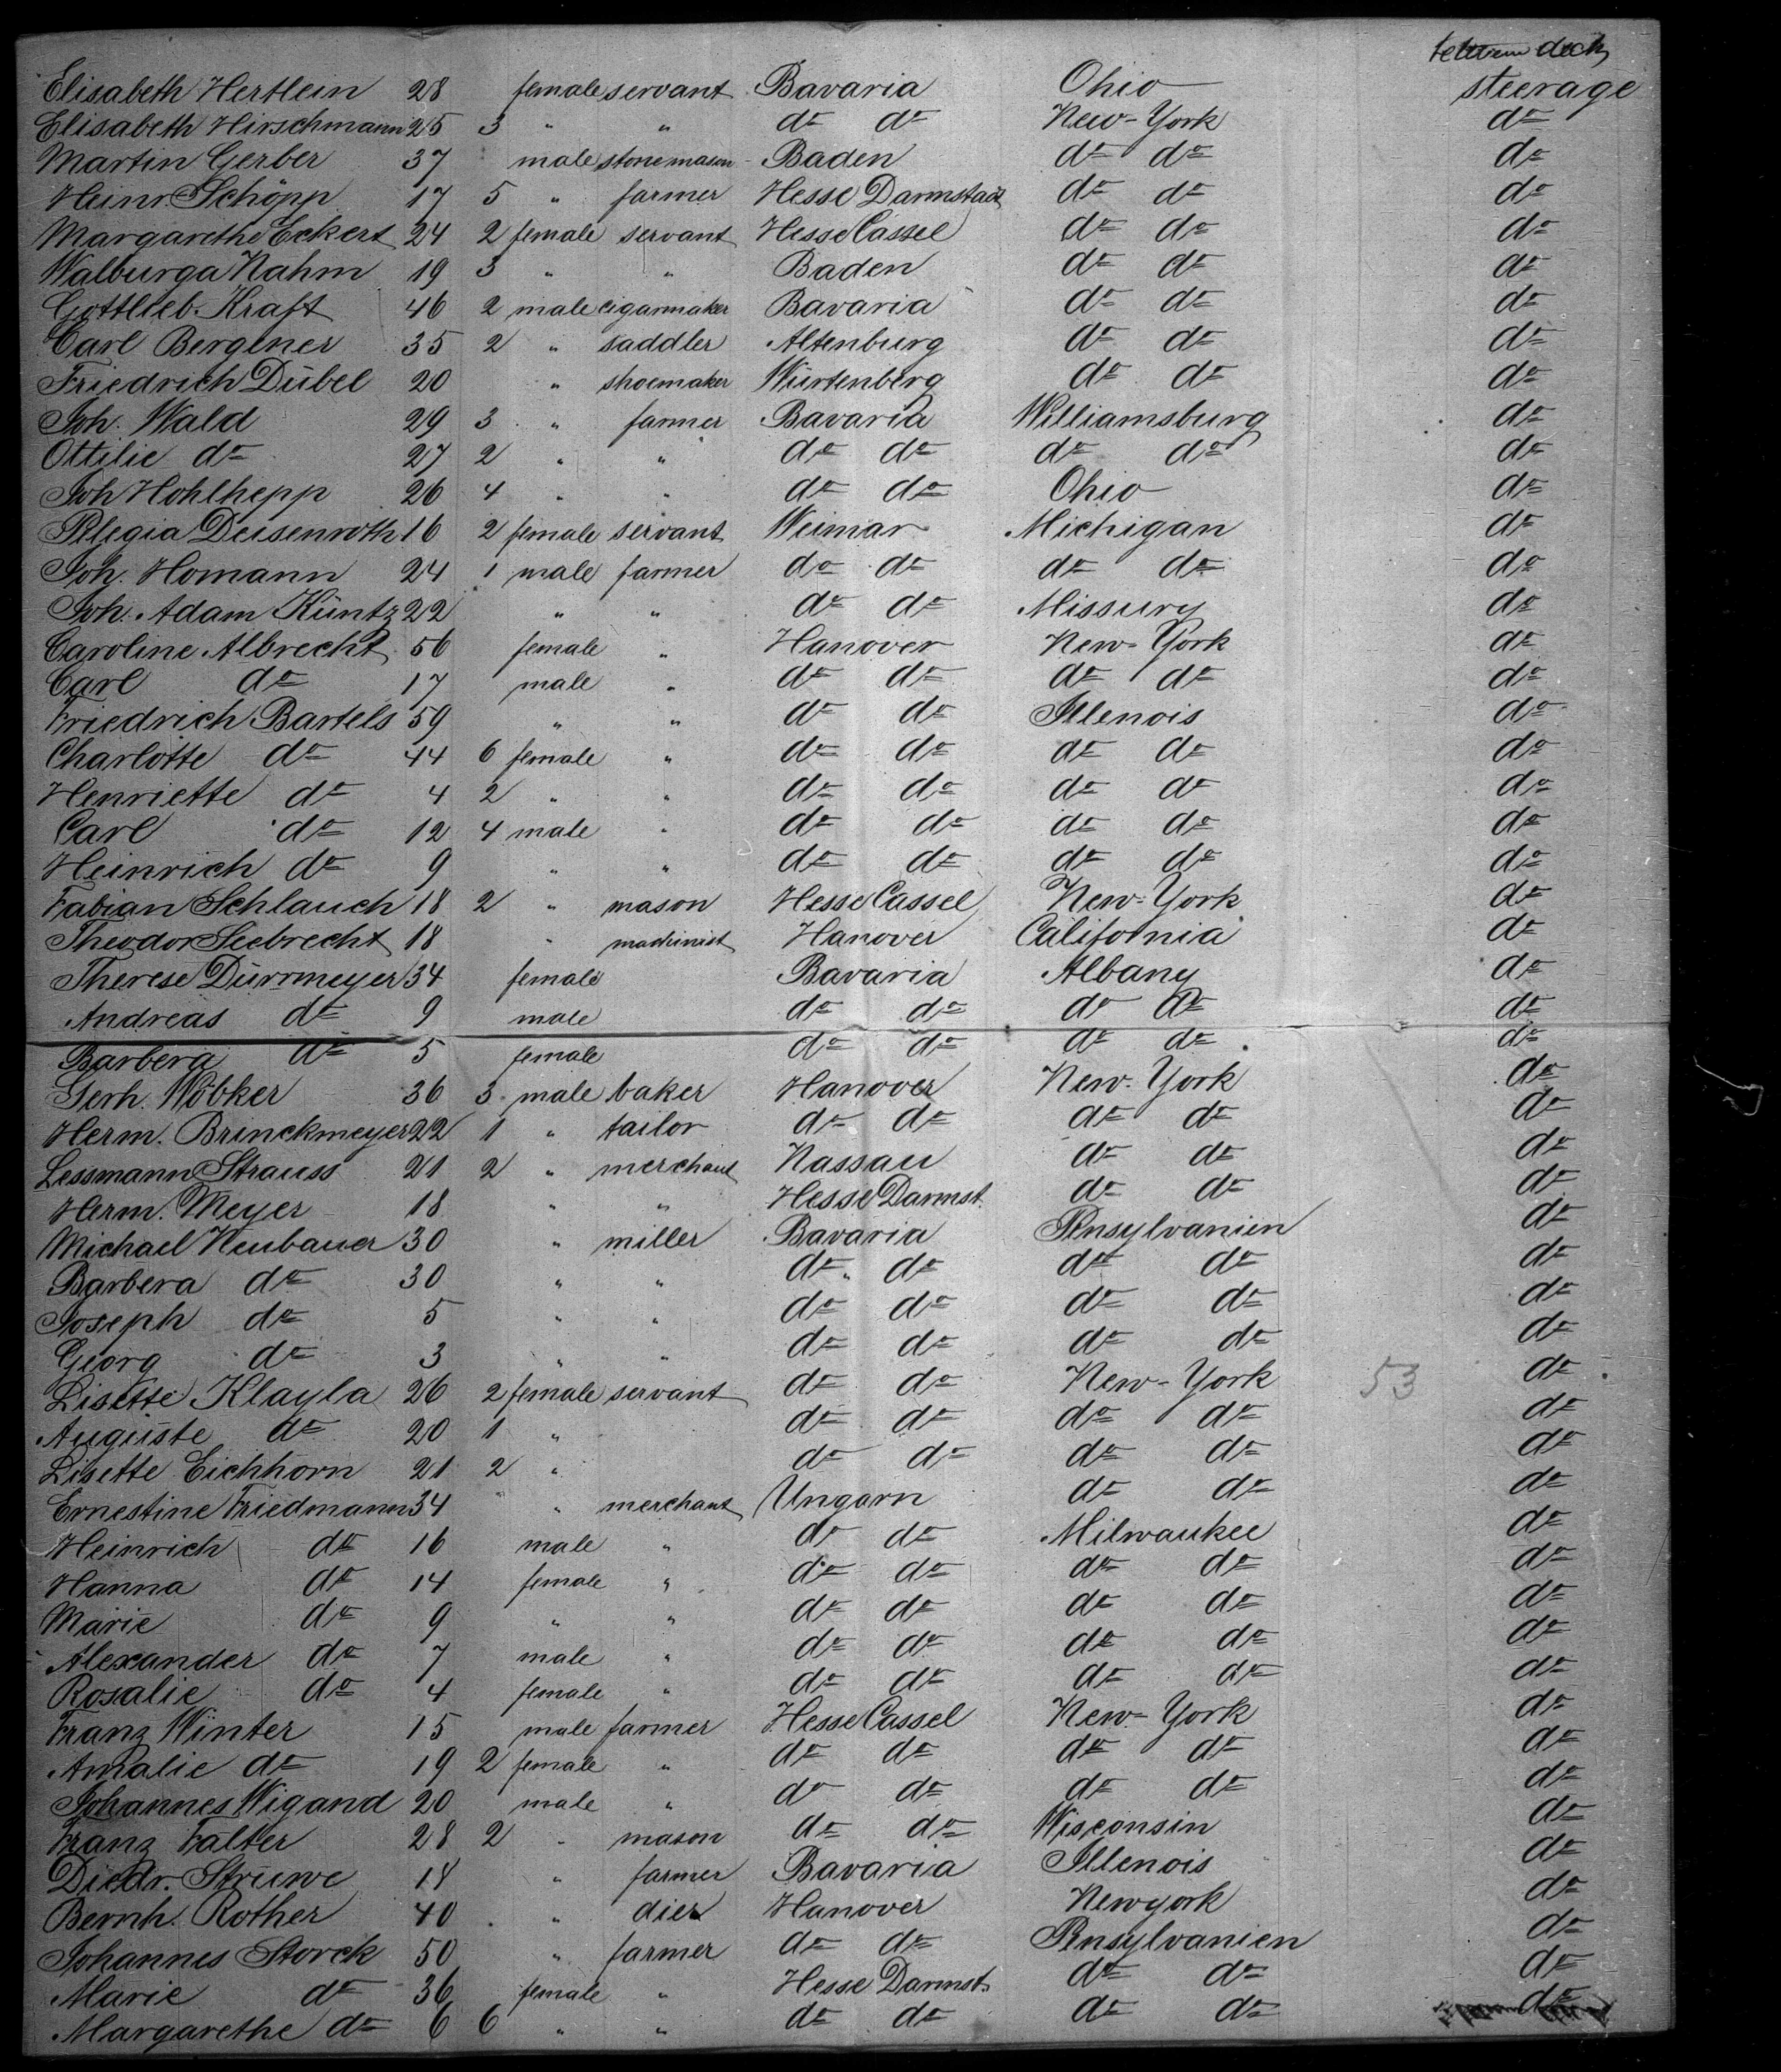 between deck
Elisabeth Hertlein 28 female servant Bavaria Ohio steerage
Elisabeth Hirschmann 25 3 " " do do New-York do
Martin Gerber 37 male stonemason Baden do do do
Heinr. Schöpp 17 5 " farmer Hesse Darmstadt do do do
Margarethe Eckert 24 2 female servant Hesse Cassel do do do
Walburga Nahm 19 3 " " Baden do do do
Gottlieb Kraft 46 2 male cigarmaker Bavaria do do do
Carl Bergener 35 2 " saddler Altenburg do do do
Friedrich Dübel 20 " shoemaker Würtenberg do do do
Joh. Wald 29 3 " farmer Bavaria Williamsburg do
Ottilie do 27 2 " " do do do do do
Joh Hohlhepp 26 4 " " do do Ohio do
Pelegia Deisenroth 16 2 female servant Weimar Michigan do
Joh. Homann 24 1 male farmer do do do do do
Joh. Adam Küntz 22 " " do do Missury do
Caroline Albrecht 56 female " Hanover New-York do
Carl do 17 male " do do do do do
Friedrich Bartels 59 " " do do Illenois do
Charlotte do 44 6 female " do do do do do
Henriette do 4 2 " " do do do do do
Carl do 12 4 male " do do do do do
Heinrich do 9 " " do do do do do
Fabian Schlauch 18 2 " mason Hesse Cassel New-York do
Theodor Seebrecht 18 " machinist Hanover California do
Therese Dürrmeyer 34 female Bavaria Albany do
Andreas do 9 male do do do do do
Barbera do 5 female do do do do do
Gerh. Wöbker 36 3 male baker Hanover New-York do
Herm. Brinckmeyer 22 1 " tailor do do do do do
Lessmann Strauss 21 2 " merchant Nassau do do do
Herm. Meyer 18 " " Hesse Darmst. do do do
Michael Neubauer 30 " miller Bavaria Pensylvanien do
Barbera do 30 " " do do do do do
Joseph do 5 " " do do do do do
Georg do 3 " " do do do do do
Lisette Klayla 26 2 female servant do do New-York 53 do
Auguste do 20 1 " do do do do do
Lisette Eichhorn 21 2 " do do do do do
Ernestine Friedmann 34 " merchant Ungarn do do do
Heinrich do 16 male " do do Milwaukee do
Hanna do 14 female " do do do do do
Marie do 9 " " do do do do do
Alexander do 7 male " do do do do do
Rosalie do 4 female " do do do do do
Franz Winter 15 male farmer Hesse Cassel New-York do
Amalie do 19 2 female " do do do do do
Johannes Wigand 20 male " do do do do do
Franz Falter 28 2 " mason do do Wisconsin do
Diedr. Struwe 18 " farmer Bavaria Illenois do
Bernh. Rother 40 " dier Hanover Newyork do
Johannes Storck 50 " farmer do do Pensylvanien do
Marie do 36 female " Hesse Darmst. do do do
Margarethe do 6 6 " " do do do do do